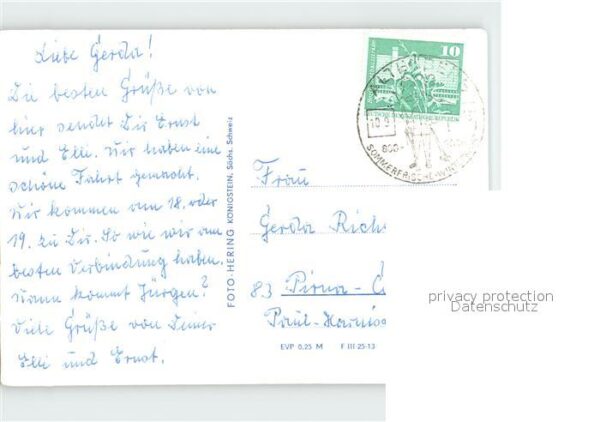 Liebe Gerda!
Die besten Grüße von
hier sendet Dir Ernst
und Elli. Wir haben eine
schöne Fahrt gemacht.
Wir kommen am 18. oder
19. zu Dir. So wie wir am
besten Verbindung haben.
Wann kommt Jürgen?
Viele Grüße von Deiner
Elli und Ernst.
FOTO-HERING KÖNIGSTEIN, Sächs. Schweiz
10
800-
SOMMERFRISCHE
Frau
Gerda Rich
83 Pirna - C
Paul-
privacy protection
Datenschutz
EVP 0,25 M F III 25-13